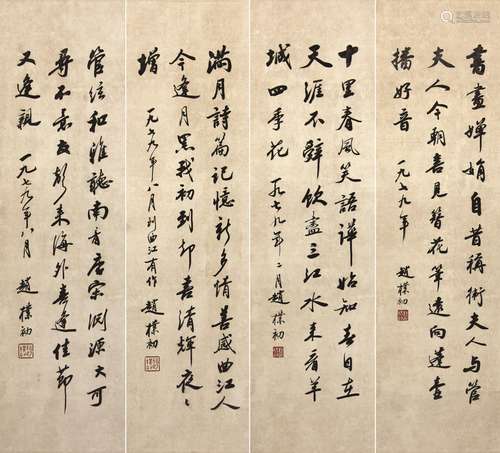 書畫嬋娟自昔稱衛夫人與管
夫人今朝喜見簪花筆遠向蓬壺
播好音
一九七九年 趙樸初
十里春風笑語譁始知春日在
天涯不辭飲盡三江水來看羊
城四季花
一九七九年二月趙樸初
滿月詩篇記憶新多情善感曲江人
今逢月黑我初到卻喜清輝夜〻
增
一九七九年八月到曲江有作 趙樸初
管弦和雅聽南音唐宋淵源大可
尋不意友聲來海外喜逢佳節
又逢親
一九七九年八月 趙樸初